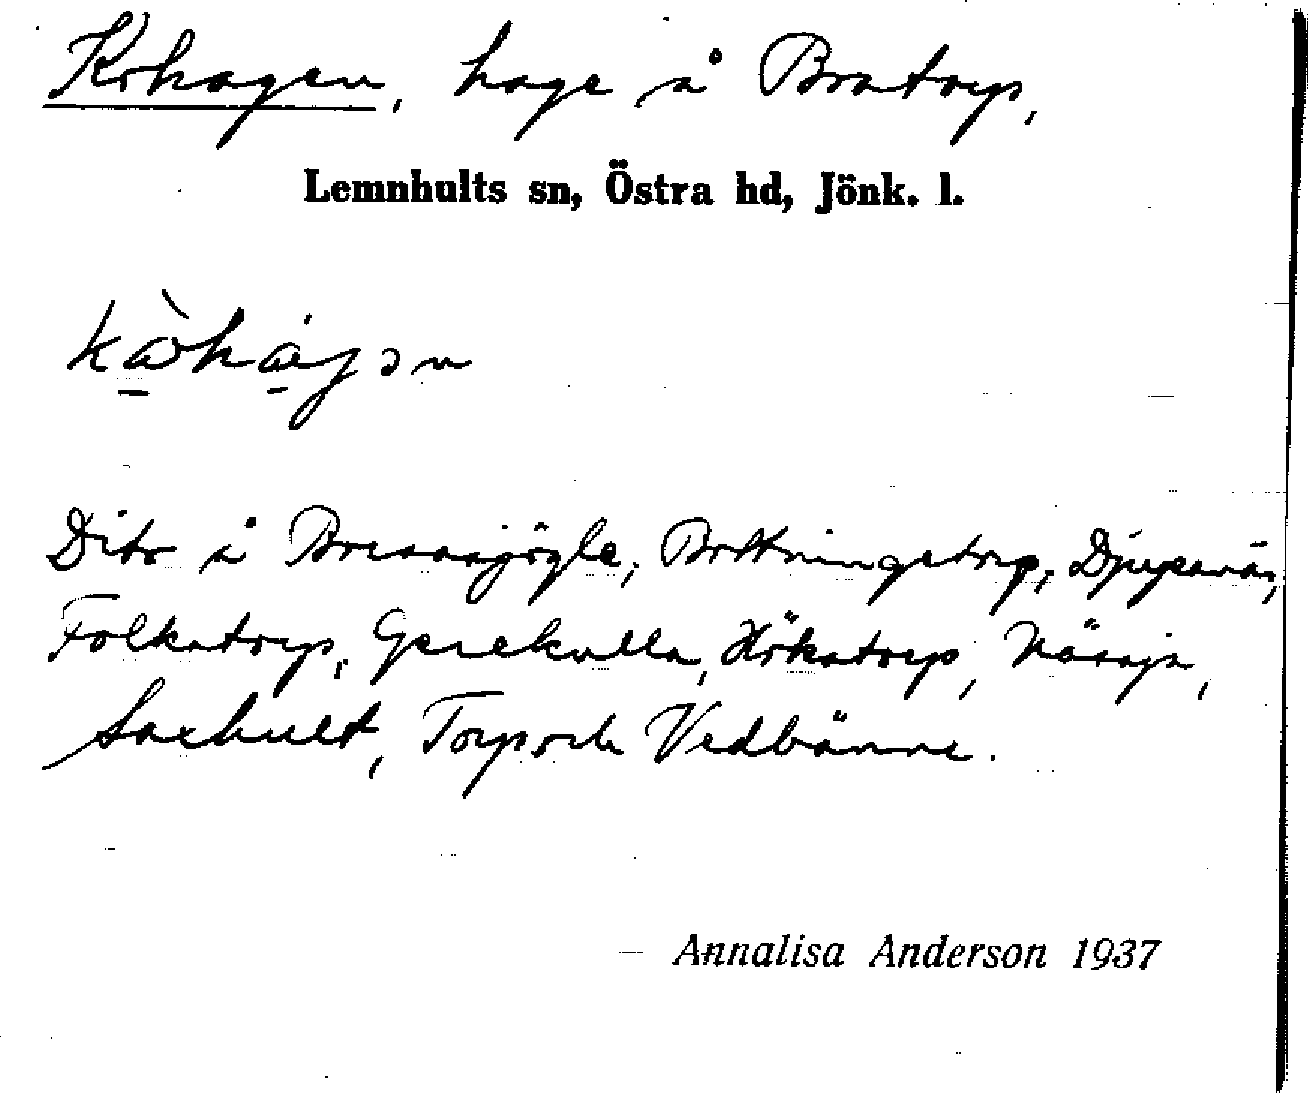 Kohagen, hage å Bratorp,
Lemnhults sn, Östra hd, Jönk. l.
Dito å Brunnsgöla, Bottningstorp, Djupanäs,
Folkatorp, Gerekulla, Hökatorp, Näsaja,
Sochult, Torp och Vedbänne.
Annalisa Anderson 1937